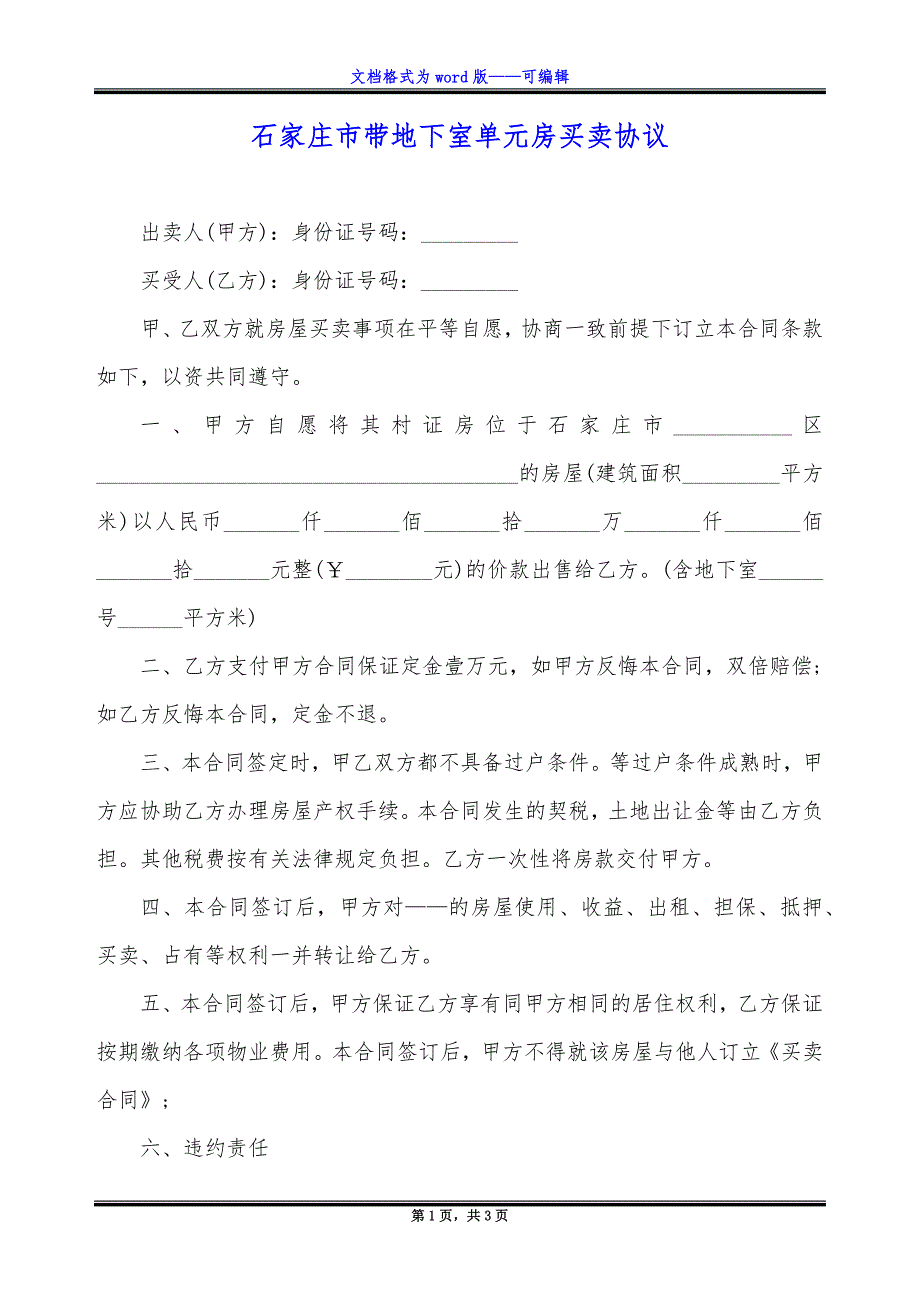 文档格式为 word 版——可编辑
石家庄市带地下室单元房买卖协议
出卖人(甲方)：身份证号码：_________
买受人(乙方)：身份证号码：_________
甲、乙双方就房屋买卖事项在平等自愿，协商一致前提下订立本合同条款
如下，以资共同遵守。
一、甲方自愿将其村证房位于石家庄市___________区
_______________________________________的房屋(建筑面积_________平方
米)以人民币_______仟_______佰_______拾_______万_______仟_______佰
_______拾_______元整(￥________元)的价款出售给乙方。(含地下室______
号______平方米)
二、乙方支付甲方合同保证定金壹万元，如甲方反悔本合同，双倍赔偿;
如乙方反悔本合同，定金不退。
三、本合同签定时，甲乙双方都不具备过户条件。等过户条件成熟时，甲
方应协助乙方办理房屋产权手续。本合同发生的契税，土地出让金等由乙方负
担。其他税费按有关法律规定负担。乙方一次性将房款交付甲方。
四、本合同签订后，甲方对——的房屋使用、收益、出租、担保、抵押、
买卖、占有等权利一并转让给乙方。
五、本合同签订后，甲方保证乙方享有同甲方相同的居住权利，乙方保证
按期缴纳各项物业费用。本合同签订后，甲方不得就该房屋与他人订立《买卖
合同》;
六、违约责任
第 1 页，共 3 页